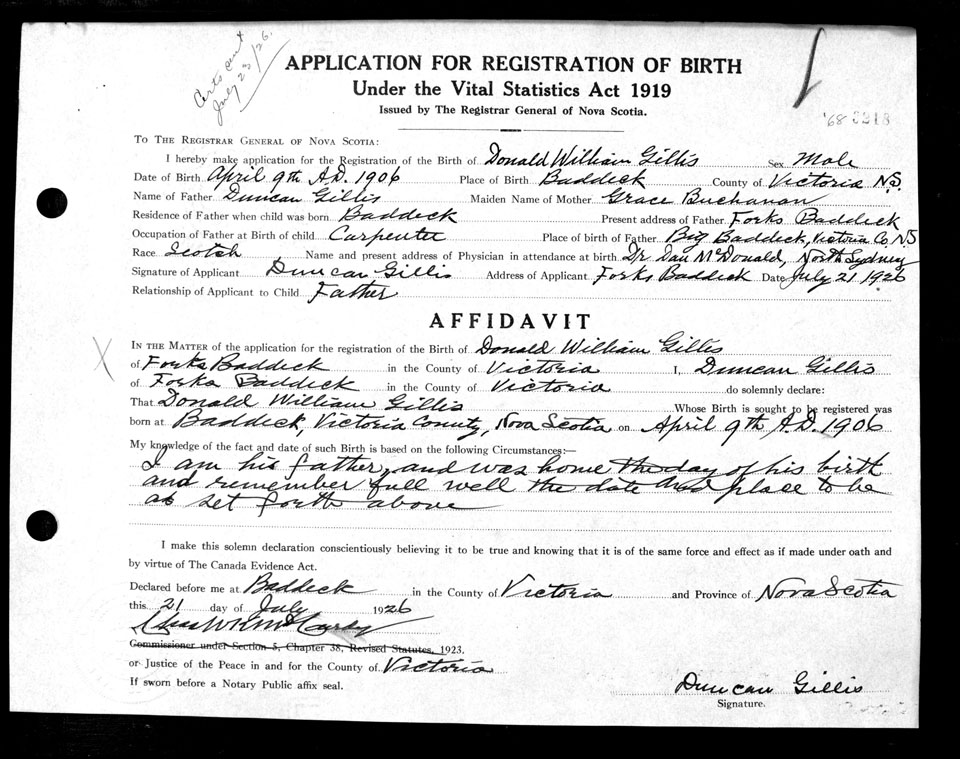 Certs sent
July 23/26.
APPLICATION FOR REGISTRATION OF BIRTH
Under the Vital Statistics Act 1919
Issued by The Registrar General of Nova Scotia.
'68
TO THE REGISTRAR GENERAL OF NOVA SCOTIA:
I hereby make application for the Registration of the Birth of Donald William Gillis Sex Male
Date of Birth April 9th A.D. 1906 Place of Birth Baddeck County of Victoria N.S.
Name of Father Duncan Gillis Maiden Name of Mother Grace Buchanan
Residence of Father when child was born Baddeck Present address of Father Forks Baddeck
Occupation of Father at Birth of child Carpenter Place of birth of Father Big Baddeck, Victoria Co NS
Race Scotch Name and present address of Physician in attendance at birth Dr Dan McDonald, North Sydney
Signature of Applicant Duncan Gillis Address of Applicant Forks Baddeck Date July 21 1926
Relationship of Applicant to Child Father
AFFIDAVIT
IN THE MATTER of the application for the registration of the Birth of Donald William Gillis
of Forks Baddeck in the County of Victoria I, Duncan Gillis
of Forks Baddeck in the County of Victoria do solemnly declare:
That Donald William Gillis Whose Birth is sought to be registered was
born at Baddeck, Victoria County, Nova Scotia on April 9th A.D. 1906
My knowledge of the fact and date of such Birth is based on the following Circumstances:—
I am his father, and was home the day of his birth
and remember full well the date and place to be
as set forth above
I make this solemn declaration conscientiously believing it to be true and knowing that it is of the same force and effect as if made under oath and
by virtue of The Canada Evidence Act.
Declared before me at Baddeck in the County of Victoria and Province of Nova Scotia
this 21 day of July 1926
Chas W K McCurdy
Commissioner under Section 5, Chapter 38, Revised Statutes, 1923.
or Justice of the Peace in and for the County of Victoria
If sworn before a Notary Public affix seal.
Duncan Gillis
Signature.